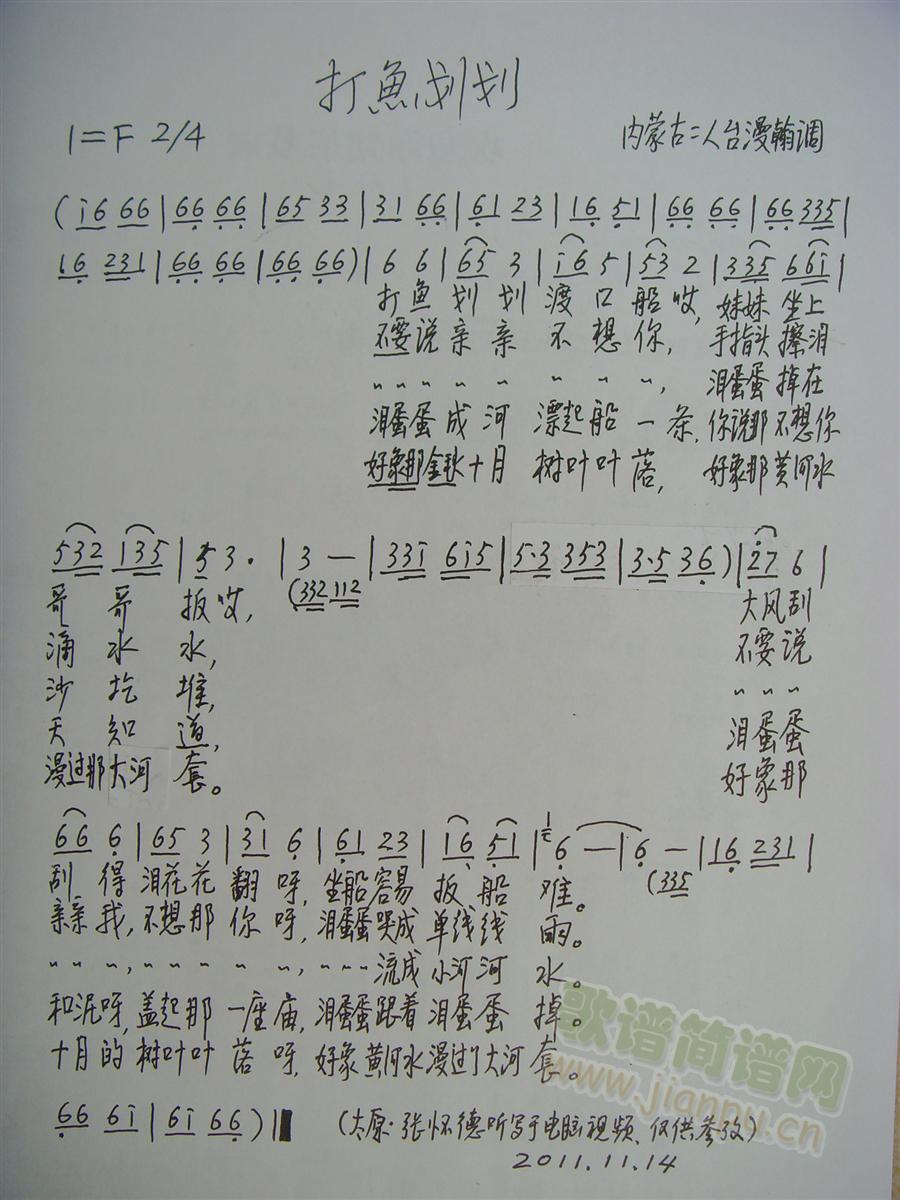 打魚划划
1=F 2/4 内蒙古二人台漫翰调
(i6 66|66 66|65 33|31 66|61 23|16 51|66 66|66 335|
16 231|66 66|66 66)|6 6|65 3|i6 5|53 2|335 66i|
打鱼划划渡口船哎,妹妹坐上
不要说亲亲不想你,手指头擦泪
〃〃〃〃〃〃〃〃,泪蛋蛋掉在
泪蛋蛋成河漂起船一条,你说那不想你
好象那金秋十月树叶叶落,好象那黄河水
532 135|53.|3 —|33i 6i5|5·3 353|3·5 36)|27 6|
(332 112
哥哥扳哎,大风刮
涌水水,不要说
沙圪堆,〃〃〃
天知道,泪蛋蛋
漫过那大河套。好象那
66 6|65 3|31 6|61 23|16 51|6 —|6 —|16 231|
(335
刮得泪花花翻呀,坐船容易扳船难。
亲亲我,不想那你呀,泪蛋蛋哭成单线线雨。
〃〃〃,〃〃〃〃〃,〃〃〃流成小河河水。
和泥呀,盖起那一座庙,泪蛋蛋跟着泪蛋蛋掉。
十月的树叶叶落呀,好象黄河水漫过了大河套。
66 6i|6i 66)| (太原·张怀德听写于电脑视频、仅供参考)
2011.11.14
歌谱简谱网
www.jianpu.cn